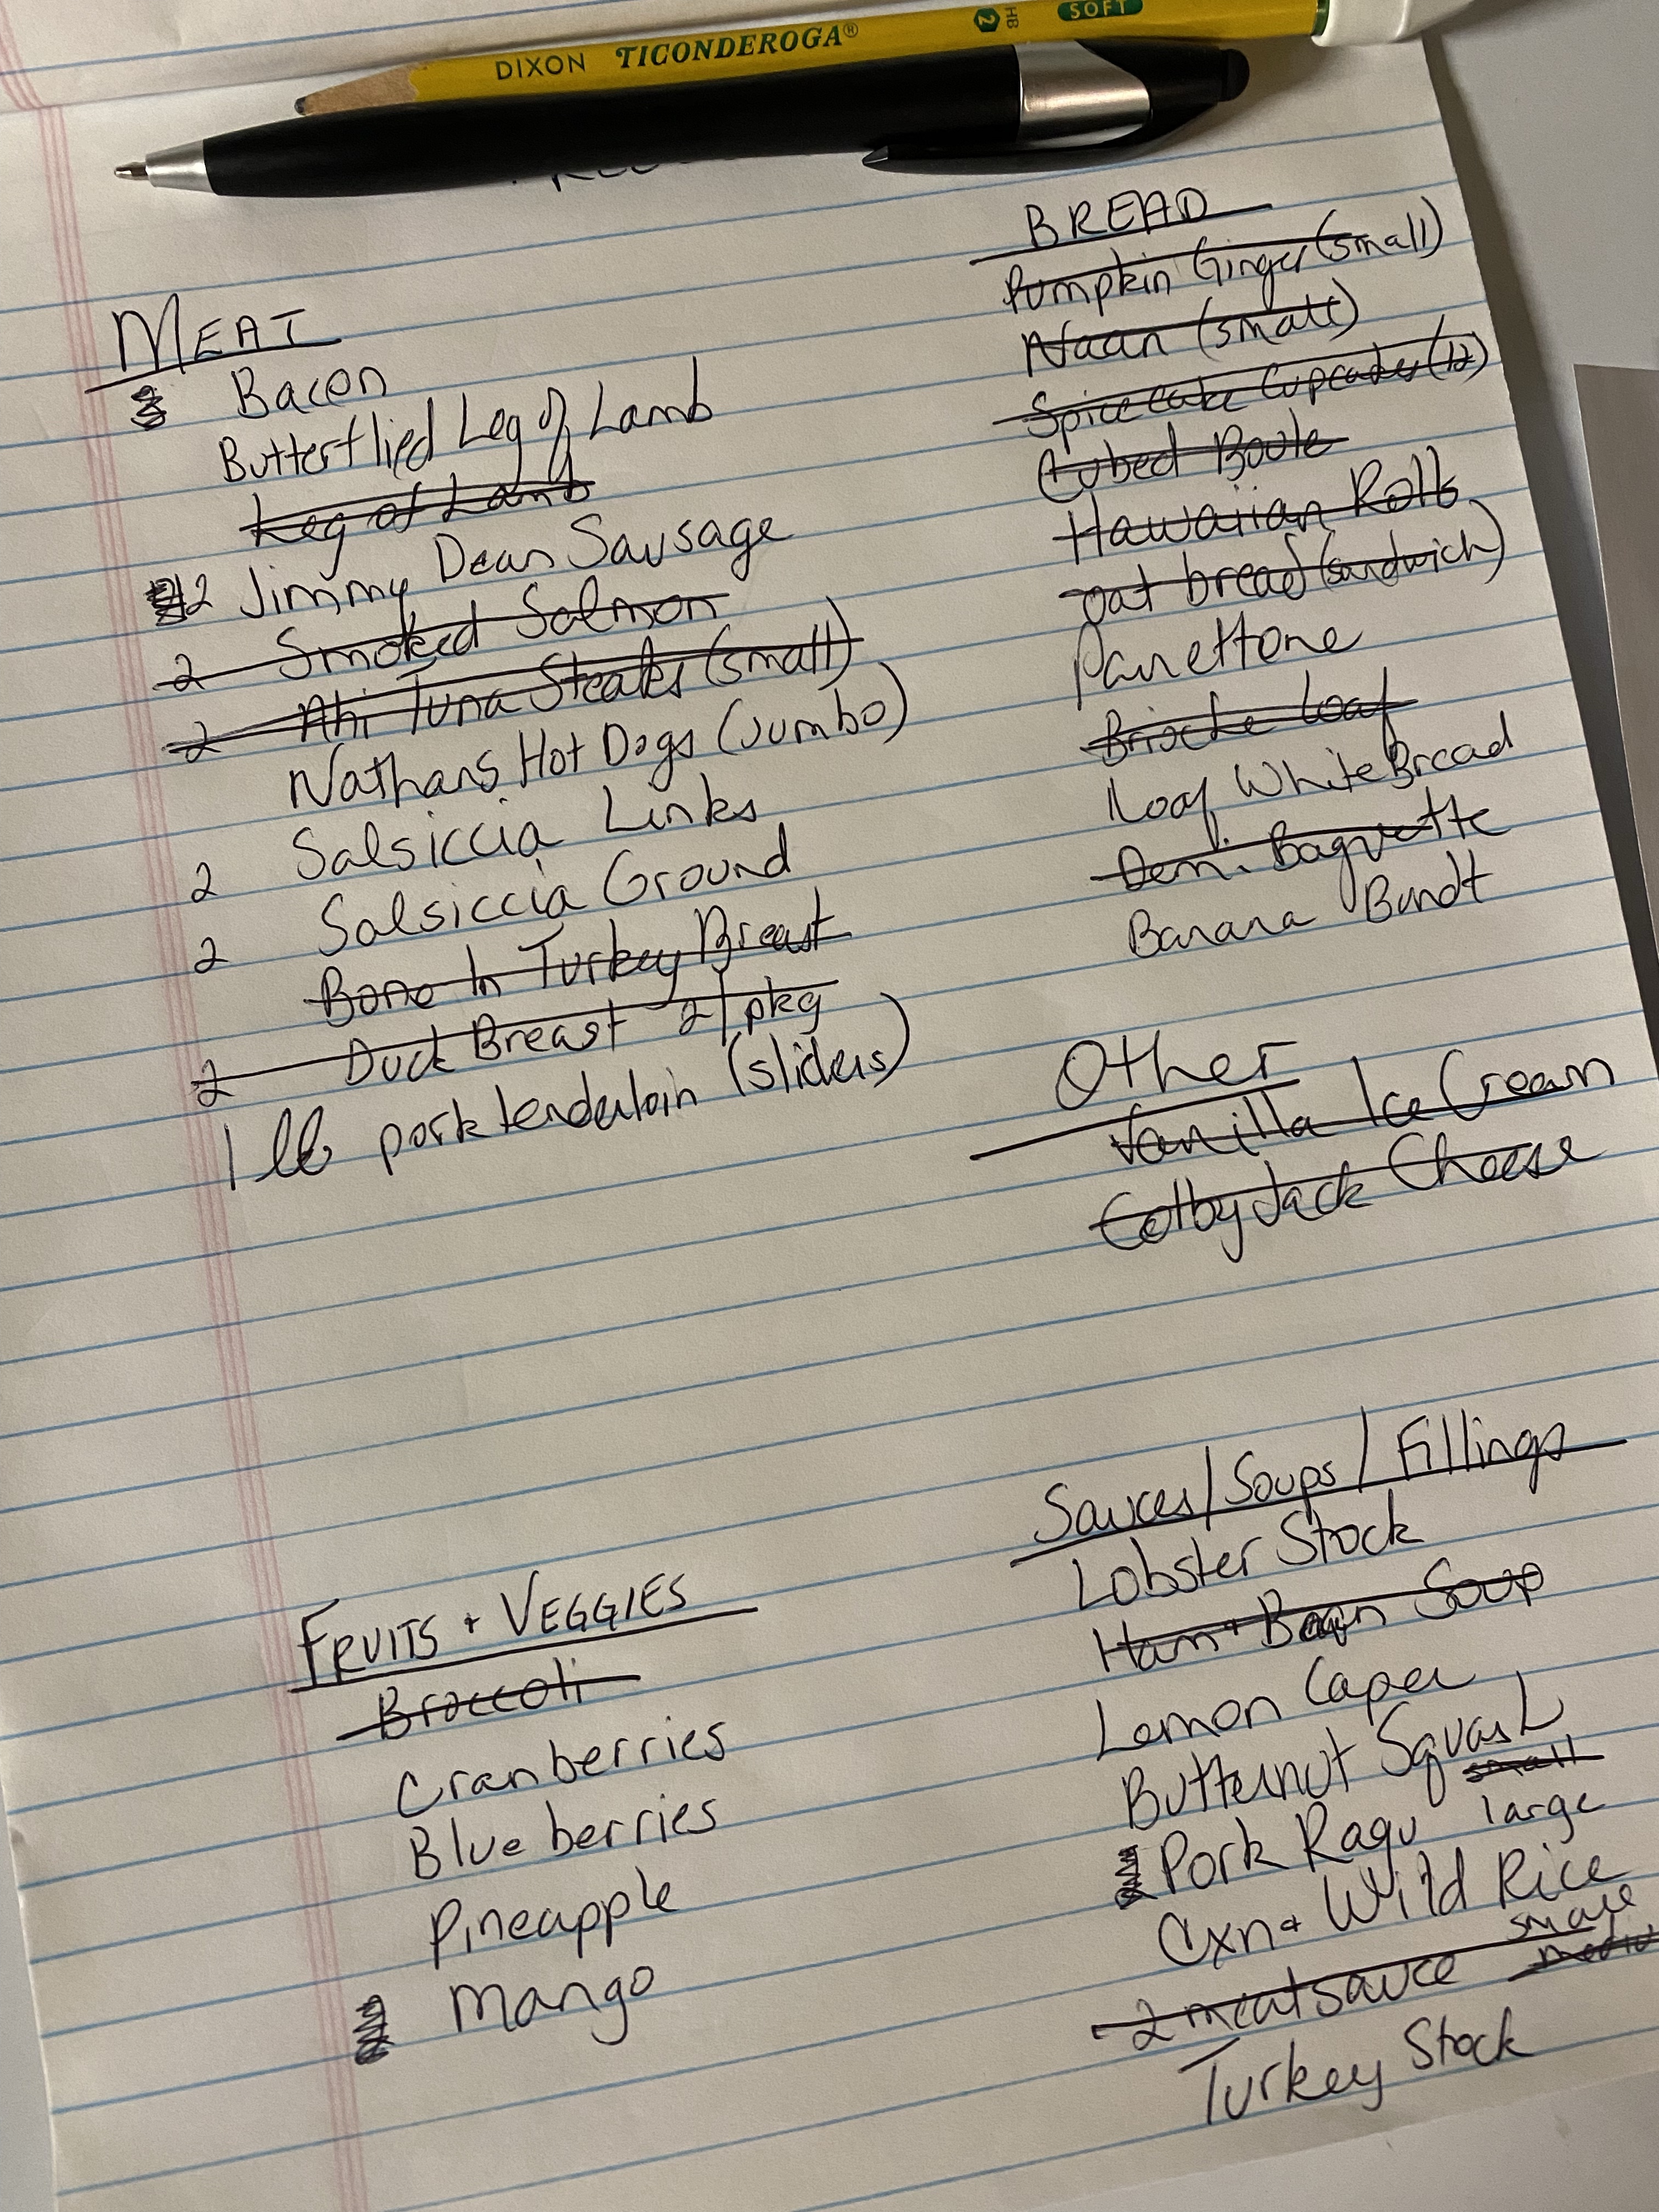 DIXON TICONDEROGA® 2 HB SOFT
MEAT
Bacon
Butterflied Leg of Lamb
Leg of Lamb
2 Jimmy Dean Sausage
2 Smoked Salmon
2 Ahi Tuna Steaks (small)
Nathans Hot Dogs (Jumbo)
2 Salsiccia Links
2 Salsiccia Ground
Bone In Turkey Breast
2 Duck Breast 2/pkg
1 lb pork tenderloin (sliders)
BREAD
Pumpkin Ginger (small)
Naan (small)
Spice cake Cupcakes (12)
Cubed Boule
Hawaiian Rolls
oat bread (sandwich)
Panettone
Brioche Loaf
1 loaf White Bread
Demi Baguette
Banana Bundt
Other
Vanilla Ice Cream
Colby Jack Cheese
FRUITS + VEGGIES
Broccoli
Cranberries
Blueberries
Pineapple
Mango
Sauces/Soups/Fillings
Lobster Stock
Ham + Bean Soup
Lemon Caper
Butternut Squash
small
Pork Ragu large
Cxn + Wild Rice
small
2 meat sauce
Turkey Stock